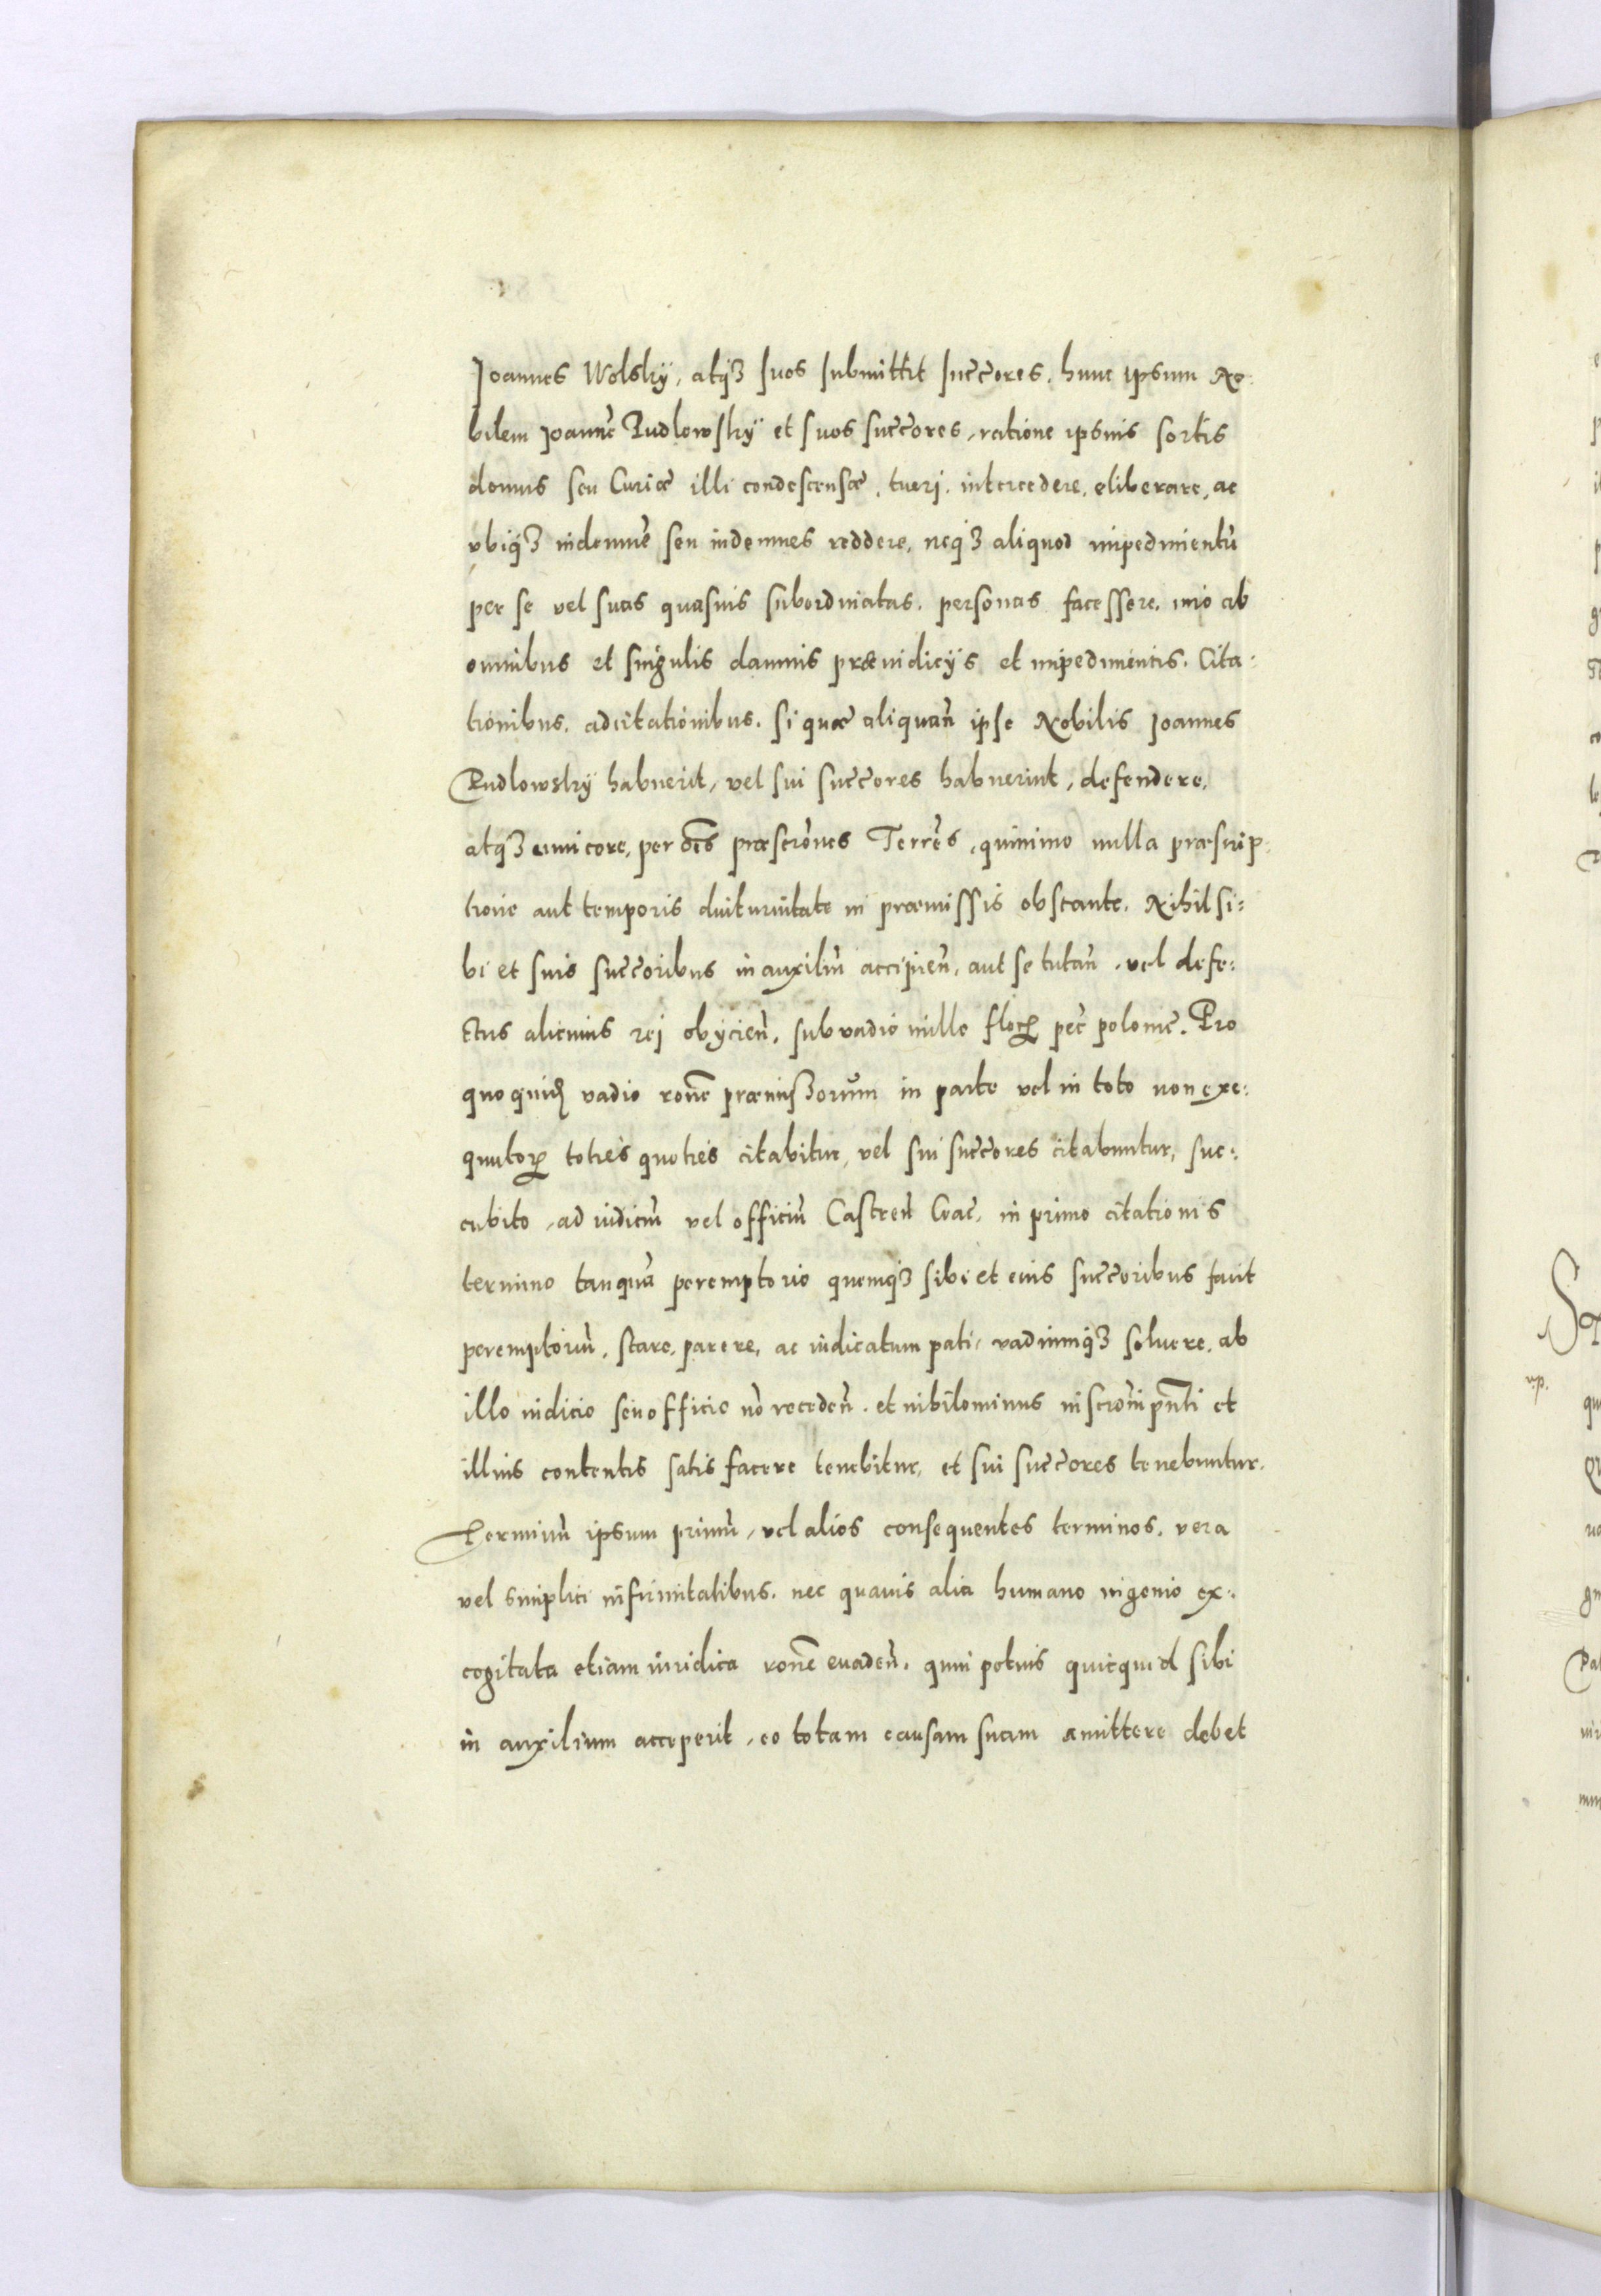 Joannes Wolskÿ, atqꝫ suos submittit succ̃ores, hunc ipsum No-
bilem Joannẽ Rudlowskÿ et suos succ̃ores, ratione ipsius sortis
domus seu Curiæ illi condescensæ, tueri, intercedere, eliberare, ac
vbiqꝫ indemnẽ seu indemnes reddere, neqꝫ aliquod impedimentũ
per se vel suas quasuis subordinatas, personas facessere, imo ab
omnibus et singulis damnis præiudicÿs et impedimentis, Cita-
tionibus, adcitationibus, si quæ aliquan̄ ipse Nobilis Joannes
Rudlowskÿ habuerit, vel sui succ̃ores habuerint, defendere,
atqꝫ euincere, per oẽs præscrõnes Terrẽs, quinimo nulla præscrip-
tione aut temporis diuturnitate in præmissis obstante, Nihil si=
bi et suis succ̃oribus in auxiliũ accipien̄, aut se tutan̄, vel defe=
ctus alicuius rei obÿcien̄, sub vadio mille floꝝ pec̃ polonic̃. Pro
quo quid̃ vadio rone̅ præmissorum in parte vel in toto non exe=
quutoꝝ toties quoties citabitur, vel sui succ̃ores citabuntur, suc=
cubito, ad iudiciũ vel officiũ Castren̄ Crac̃, in primo citationis
termino tanquã peremptorio quemqꝫ sibi et eius succ̃oribus fauit
peremptoriũ, stare, parere, ac iudicatum pati, vadiumqꝫ soluere, ab
illo iudicio seu officio nõ receden̄, et nihilominus inscrõni pñti et
illius contentis satisfacere tenebitur, et sui succ̃ores tenebuntur.
Terminũ ipsum primũ, vel alios consequentes terminos, vera
vel simplici infirmitatibus, nec quauis alia humano ingenio ex=
cogitata etiam iuridica rone̅ euaden̄, quin potius quicquid sibi
in auxilium acceperit, eo totam causam suam amittere debet